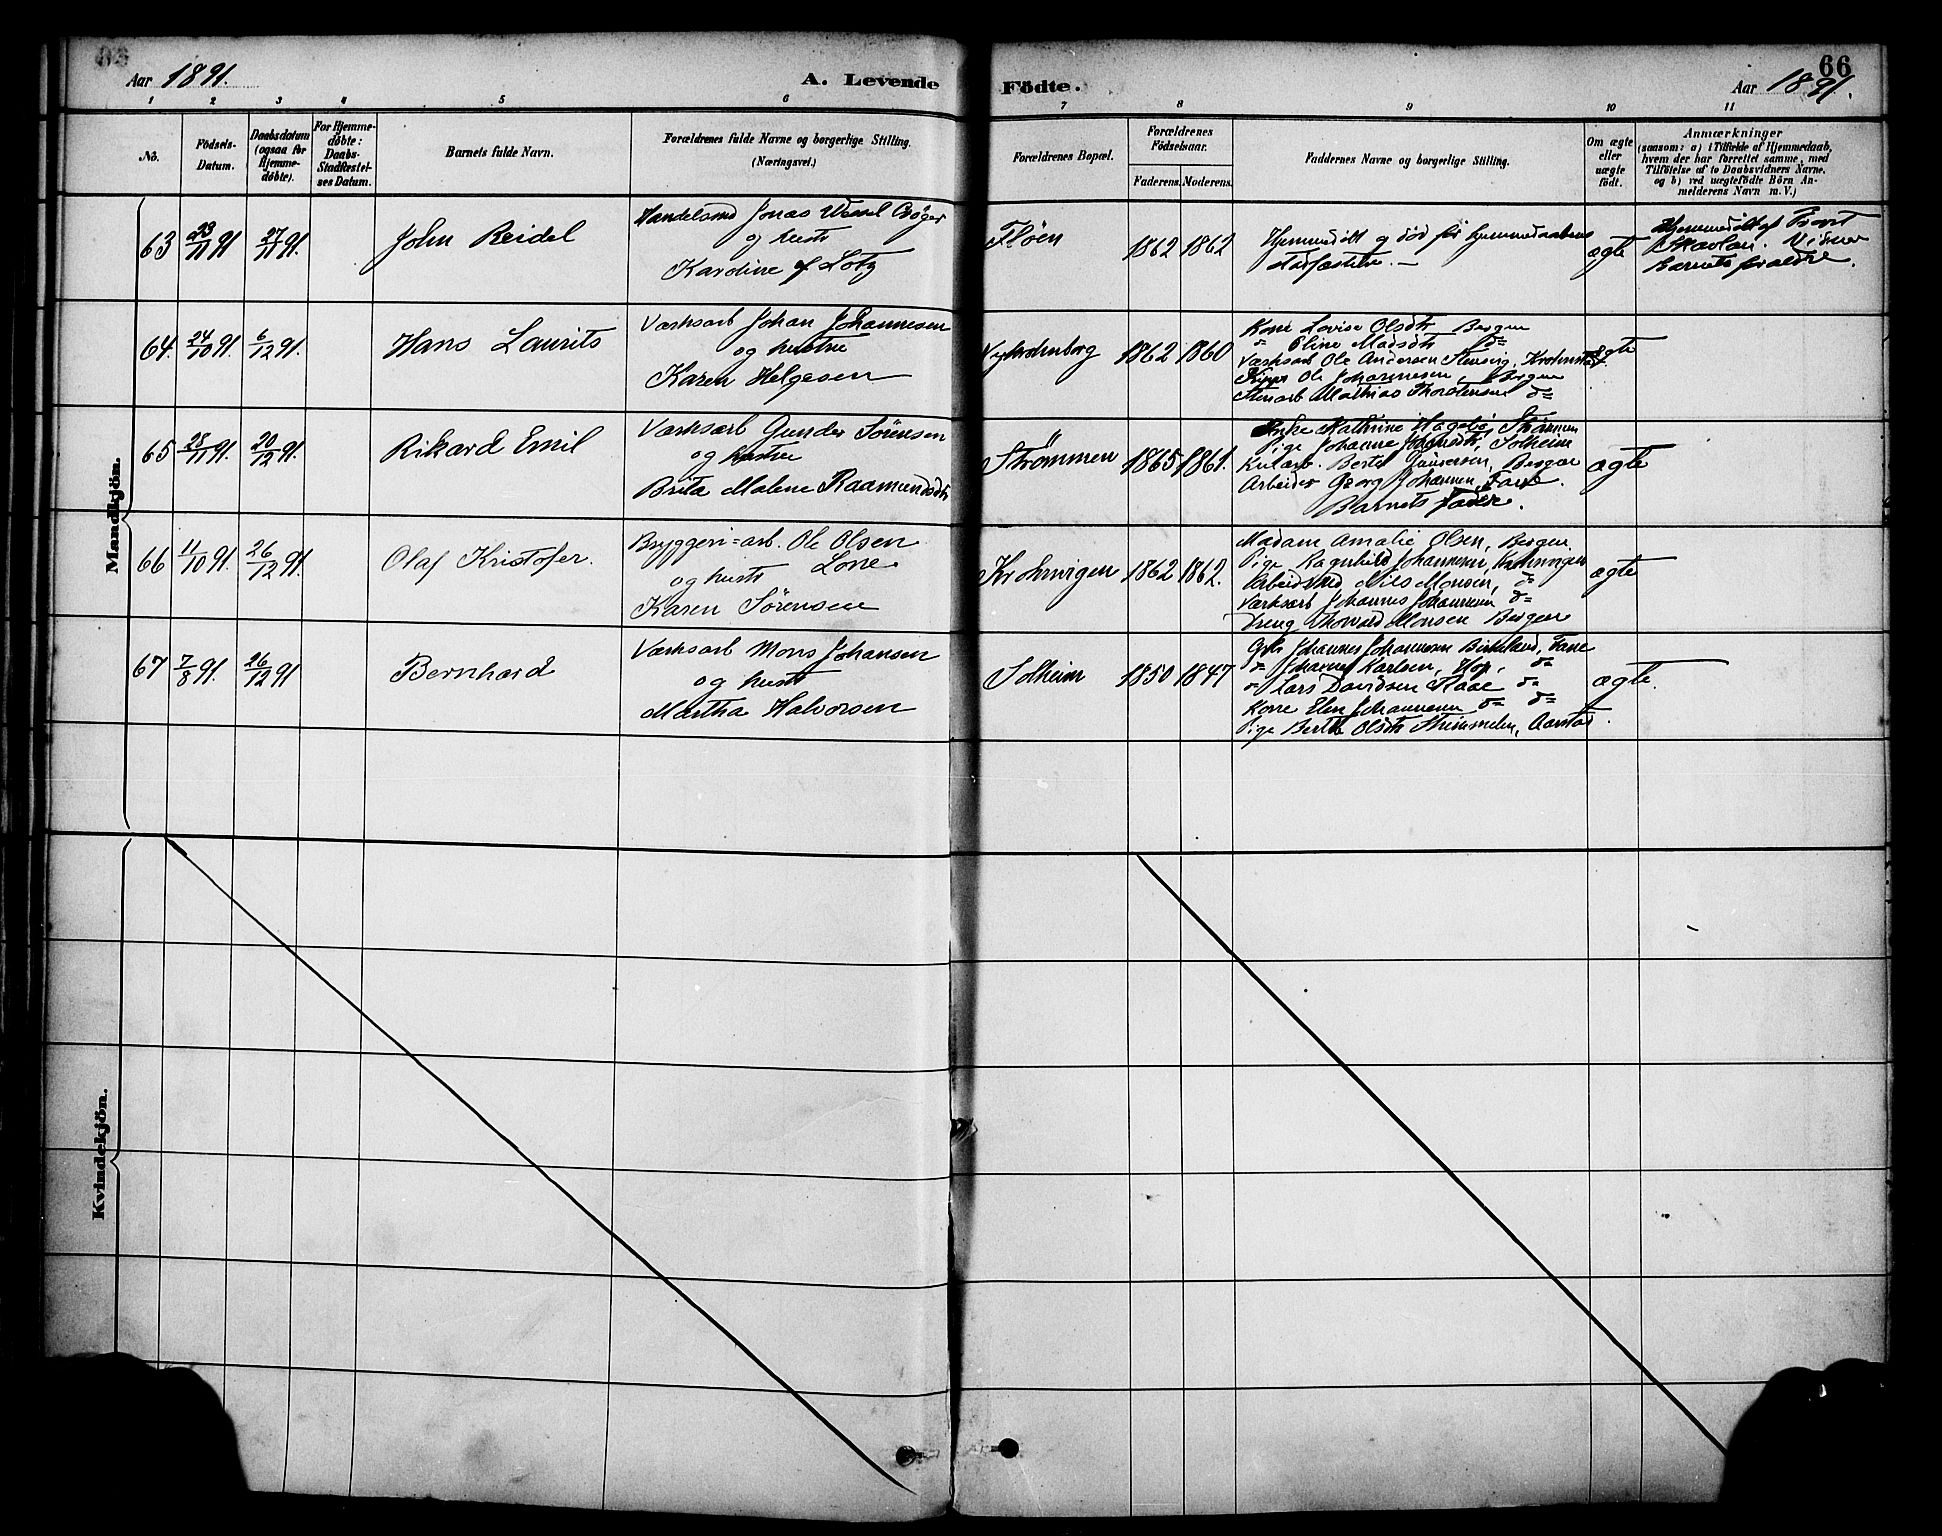 Aar 1891.
A. Levende
Födte.
66
Aar 1891.
1 2 3 4 5 6 7 8 9 10 11
No.
Födsels-
Datum.
Daabsdatum
(ogsaa for
Hjemme-
döbte).
For Hjemme-
döbte:
Daabs-
Stadfæstel-
ses Datum.
Barnets fulde Navn.
Forældrenes fulde Navne og borgerlige Stilling.
(Næringsvei.)
Forældrenes Bopæl.
Forældrenes
Födselsaar.
Faderens. Moderens.
Faddernes Navne og borgerlige Stilling.
Om ægte
eller
uægte
födt.
Anmærkninger
(saasom: a) i Tilfælde af Hjemmedaab,
hvem der har forrettet samme, med
Tilföielse af to Daabsvidners Navne,
og b) ved uægtefödte Börn An-
melderens Navn m. V.)
Mandkjön.
63 23/11 91 27/11 91. John Reidel
Handelsmd Jonas Wessel
og hustr
Karoline f Lotz
Fløen 1862 1862
Hjemmedøbt og død før hjemmedaabens
stadfæstelse. —
ægte
Hjemmedøbt af Provst
Skavlan. Vidner
Barnets forældre.
64. 24/10 91. 6/12 91. Hans Laurits
Værksarb Johan Johannesen
og hustrue
Karen Helgesen
Nykrohnborg 1862 1860
Kone Lovise Olsdtr Bergen
" Eline Madsdtr do
Værksarb Ole Andersen
Ole Johannesen, Bergen
Stenarb Mathias Thorstensen do
ægte
65 28/11 91. 20/12 91. Rikard Emil
Værksarb Gunder Sörensen
og hustrue
Brita Malene Raamundsdtr
Strömmen 1865 1861.
Enke Kathrine Strömmen
Pige Johanne Solheim
Bertel Bergen
Arbeider Georg Johannesen, Fane.
Barnets Fader.
ægte
66 11/10 91. 26/12 91. Olaf Kristofer.
Bryggeri-arb. Ole Olsen
og hustr Lone
Karen Sörensen
Krohnvigen 1862 1862.
Madam Amalie Olsen, Bergen
Pige Ragnhild Johannesen, Krohnvigen
Arbeidsmd Nils Monsen, do
Værksarb Johannes Johannesen do
Dreng Thorvald Monsen Bergen
ægte
67 7/8 91. 26/12 91 Bernhard
Værksarb Mons Johansen
og hustr
Martha Halvorsen
Solheim 1850 1847
Johannes Johannesen Birkeland, Fane
do Johannes Karlsen, Hop, do
do Lars Davidsen do
Kone Elen Johannesen do do
Pige Berthe Olsdtr Aarstad.
ægte.
Kvindekjön.